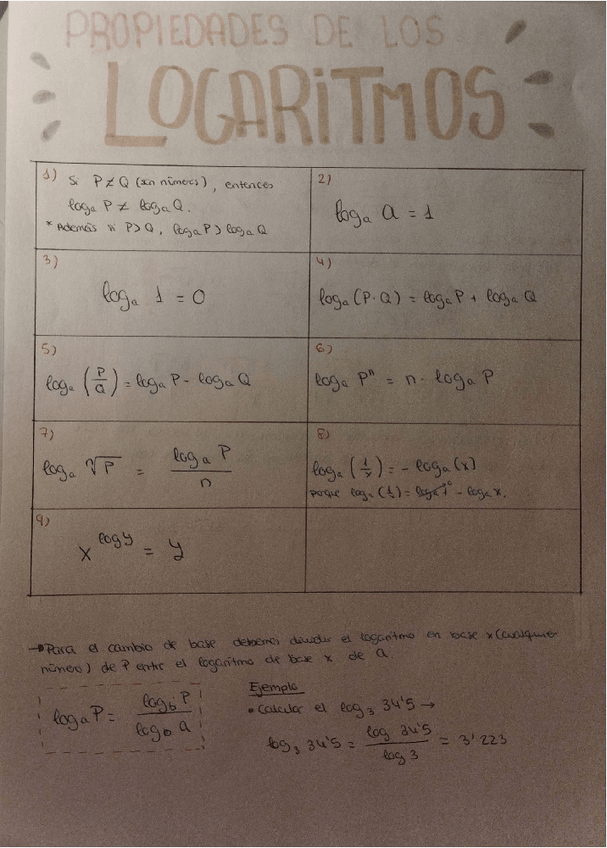 PROPIEDADES DE LOS
LOGARITMOS
1) Si P≠Q (son números), entonces
logₐ P ≠ logₐ Q.
* Además si P>Q, logₐ P > logₐ Q
2)
logₐ a = 1
3)
logₐ 1 = 0
4)
logₐ (P·Q) = logₐ P + logₐ Q
5)
logₐ (P/Q) = logₐ P - logₐ Q
6)
logₐ Pⁿ = n · logₐ P
7)
logₐ ⁿ√P = logₐ P / n
8)
logₐ (1/x) = - logₐ (x)
porque logₐ (1/x) = logₐ 1⁰ - logₐ x.
9)
x^(log y) = y
→ Para el cambio de base debemos dividir el logaritmo en base x (cualquier
número) de P entre el logaritmo de base x de a.
logₐ P = log_b P / log_b a
Ejemplo
• Calcular el log₃ 34'5 →
log₃ 34'5 = log 34'5 / log 3 = 3'223